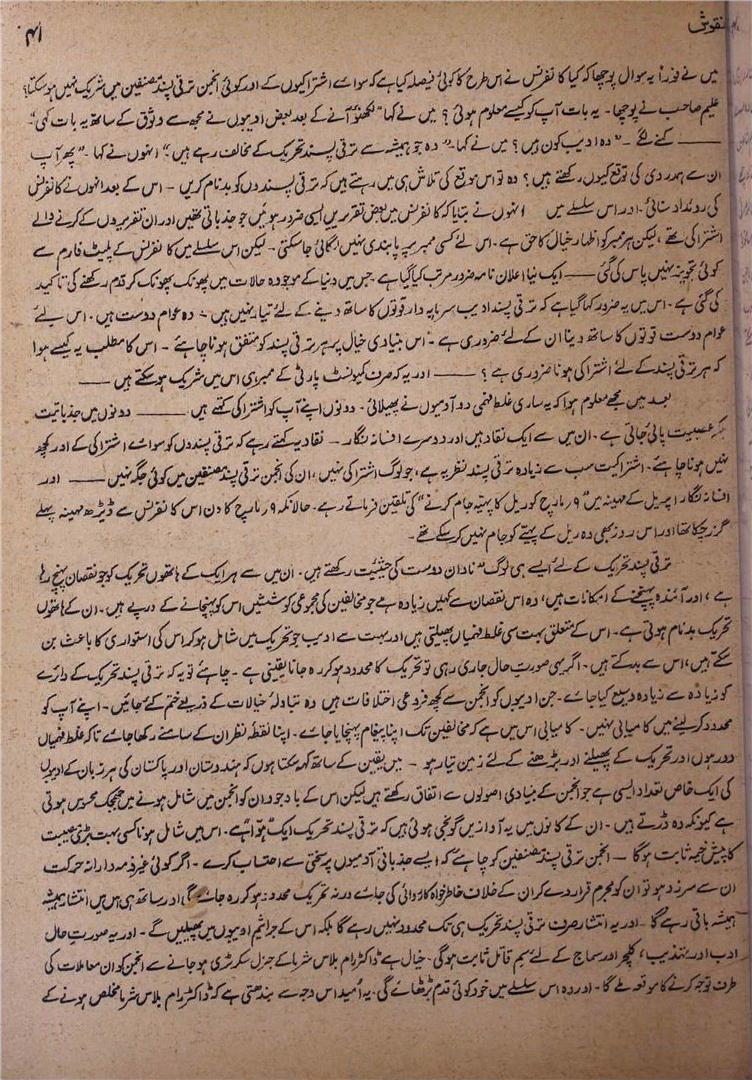 نقوش
۴۱
میں نے فوراً یہ سوال پوچھا کہ کیا کانفرنس نے اس طرح کا کوئی فیصلہ کیا ہے کہ سوائے اشتراکیوں کے اور کوئی انجمن ترقی پسند مصنفین میں شریک نہیں ہو سکتا؟
علیم صاحب نے پوچھا۔ یہ بات آپ کو کیسے معلوم ہوئی؟ میں نے کہا "لکھنؤ آنے کے بعد بعض ادیبوں نے مجھ سے وثوق کے ساتھ یہ بات کہی"۔
—— کہنے لگے۔ "وہ ادیب کون ہیں؟ میں نے کہا۔ "وہ جو ہمیشہ سے ترقی پسند تحریک کے مخالف رہے ہیں"۔ انہوں نے کہا۔ "پھر آپ
ان سے ہمدردی کی توقع کیوں رکھتے ہیں؟ وہ تو اس موقع کی تلاش ہی میں رہتے ہیں کہ ترقی پسندوں کو بدنام کریں۔ اس کے بعد انہوں نے کانفرنس
کی روئداد سنائی۔ اور اس سلسلے میں انہوں نے بتایا کہ کانفرنس میں بعض تقریریں ایسی ضرور ہوئیں جو جذباتی تھیں اور ان تقریروں کے کرنے والے
اشتراکی تھے، لیکن ہر ممبر کو اظہار خیال کا حق ہے۔ اس لئے کسی ممبر پر پابندی نہیں لگائی جاسکتی۔ لیکن اس سلسلے میں کانفرنس کے پلیٹ فارم سے
کوئی تجویز نہیں پاس کی گئی —— ایک نیا اعلان نامہ ضرور مرتب کیا گیا ہے۔ جس میں دنیا کے موجودہ حالات میں پھونک پھونک کر قدم رکھنے کی تاکید
کی گئی ہے۔ اس میں یہ ضرور کہا گیا ہے کہ ترقی پسند ادیب سرمایہ دار قوتوں کا ساتھ دینے کے لئے تیار نہیں ہیں۔ وہ عوام دوست ہیں۔ اس لئے
عوام دوست قوتوں کا ساتھ دینا ان کے لئے ضروری ہے۔ اس بنیادی خیال پر ہر ترقی پسند کو متفق ہونا چاہئے۔ اس کا مطلب یہ کیسے ہوا
کہ ہر ترقی پسند کے لئے اشتراکی ہونا ضروری ہے؟ —— اور یہ کہ صرف کمیونسٹ پارٹی کے ممبر ہی اس میں شریک ہو سکتے ہیں ——
بعد میں مجھے معلوم ہوا کہ یہ ساری غلط فہمی دو آدمیوں نے پھیلائی۔ دونوں اپنے آپ کو اشتراکی کہتے ہیں —— دونوں میں جذباتیت
بلکہ عصبیت پائی جاتی ہے۔ ان میں سے ایک نقاد ہیں اور دوسرے افسانہ نگار۔ نقاد یہ کہتے رہے کہ ترقی پسندوں کو سوائے اشتراکی کے اور کچھ
نہیں ہونا چاہئے۔ اشتراکیت سب سے زیادہ ترقی پسند نظریہ ہے، جو لوگ اشتراکی نہیں، ان کی انجمن ترقی پسند مصنفین میں کوئی جگہ نہیں —— اور
افسانہ نگار اپریل کے مہینہ میں "۹ مارچ کو ریل کا پہیہ جام کرنے" کی تلقین فرماتے رہے۔ حالانکہ ۹ مارچ کا دن اس کانفرنس سے ڈیڑھ مہینہ پہلے
گزر چکا تھا اور اس روز بھی وہ ریل کے پہیے کو جام نہیں کر سکے تھے۔
ترقی پسند تحریک کے لئے ایسے ہی لوگ "نادان دوست کی حیثیت رکھتے ہیں۔ ان میں سے ہر ایک کے ہاتھوں تحریک کو جو نقصان پہنچ رہا
ہے، اور آئندہ پہنچنے کے امکانات ہیں، وہ اس نقصان سے کہیں زیادہ ہے جو مخالفین کی مجموعی کوششیں اس کو پہنچانے کے درپے ہیں۔ ان کے ہاتھوں
تحریک بدنام ہوتی ہے۔ اس کے متعلق بہت سی غلط فہمیاں پھیلتی ہیں اور بہت سے ادیب جو تحریک میں شامل ہو کر اس کی استواری کا باعث بن
سکتے ہیں، اس سے بدکتے ہیں۔ اگر یہی صورتِ حال جاری رہی تو تحریک کا محدود ہو کر رہ جانا یقینی ہے۔ چاہئے تو یہ کہ ترقی پسند تحریک کے دائرے
کو زیادہ سے زیادہ وسیع کیا جائے۔ جن ادیبوں کو انجمن سے کچھ فروعی اختلافات ہیں وہ تبادلۂ خیالات کے ذریعے ختم کئے جائیں۔ اپنے آپ کو
محدود کر لینے میں کامیابی نہیں۔ کامیابی اس میں ہے کہ مخالفین تک اپنا پیغام پہنچایا جائے۔ اپنا نقطۂ نظر ان کے سامنے رکھا جائے تاکہ غلط فہمیاں
دور ہوں اور تحریک کے پھیلنے اور بڑھنے کے لئے زمین تیار ہو۔ میں یقین کے ساتھ کہہ سکتا ہوں کہ ہندوستان اور پاکستان کی ہر زبان کے ادیبوں
کی ایک خاص تعداد ایسی ہے جو انجمن کے بنیادی اصولوں سے اتفاق رکھتے ہیں لیکن اس کے باوجود ان کو انجمن میں شامل ہونے میں جھجک محسوس ہوتی
ہے کیونکہ وہ ڈرتے ہیں۔ ان کے کانوں میں یہ آوازیں گونجی ہوئی ہیں کہ ترقی پسند تحریک ایک "ہوّا" ہے۔ اس میں شامل ہونا کسی بہت بڑی مصیبت
کا پیش خیمہ ثابت ہوگا۔ انجمن ترقی پسند مصنفین کو چاہئے کہ ایسے جذباتی آدمیوں پر سختی سے احتساب کرے۔ اگر کوئی غیر ذمہ دارانہ حرکت
ان سے سرزد ہو تو ان کو مجرم قرار دے کر ان کے خلاف خاطر خواہ کاروائی کی جائے ورنہ تحریک محدود ہو کر رہ جائے گی اور ساتھ ہی اس میں انتشار ہمیشہ
ہمیشہ باقی رہے گا۔ اور یہ انتشار صرف ترقی پسند تحریک ہی تک محدود نہیں رہے گا بلکہ اس کے جراثیم ادیبوں میں پھیلیں گے۔ اور یہ صورتِ حال
ادب اور تہذیب، کلچر اور سماج کے لئے سمِ قاتل ثابت ہوگی۔ خیال ہے ڈاکٹر رام بلاس شرما کے جنرل سکرٹری ہو جانے سے انجمن کو ان معاملات کی
طرف توجہ کرنے کا موقعہ ملے گا۔ اور وہ اس سلسلے میں خود کوئی قدم بڑھائے گی۔ یہ اُمید اس وجہ سے بندھتی ہے کہ ڈاکٹر رام بلاس شرما مخلص ہونے کے